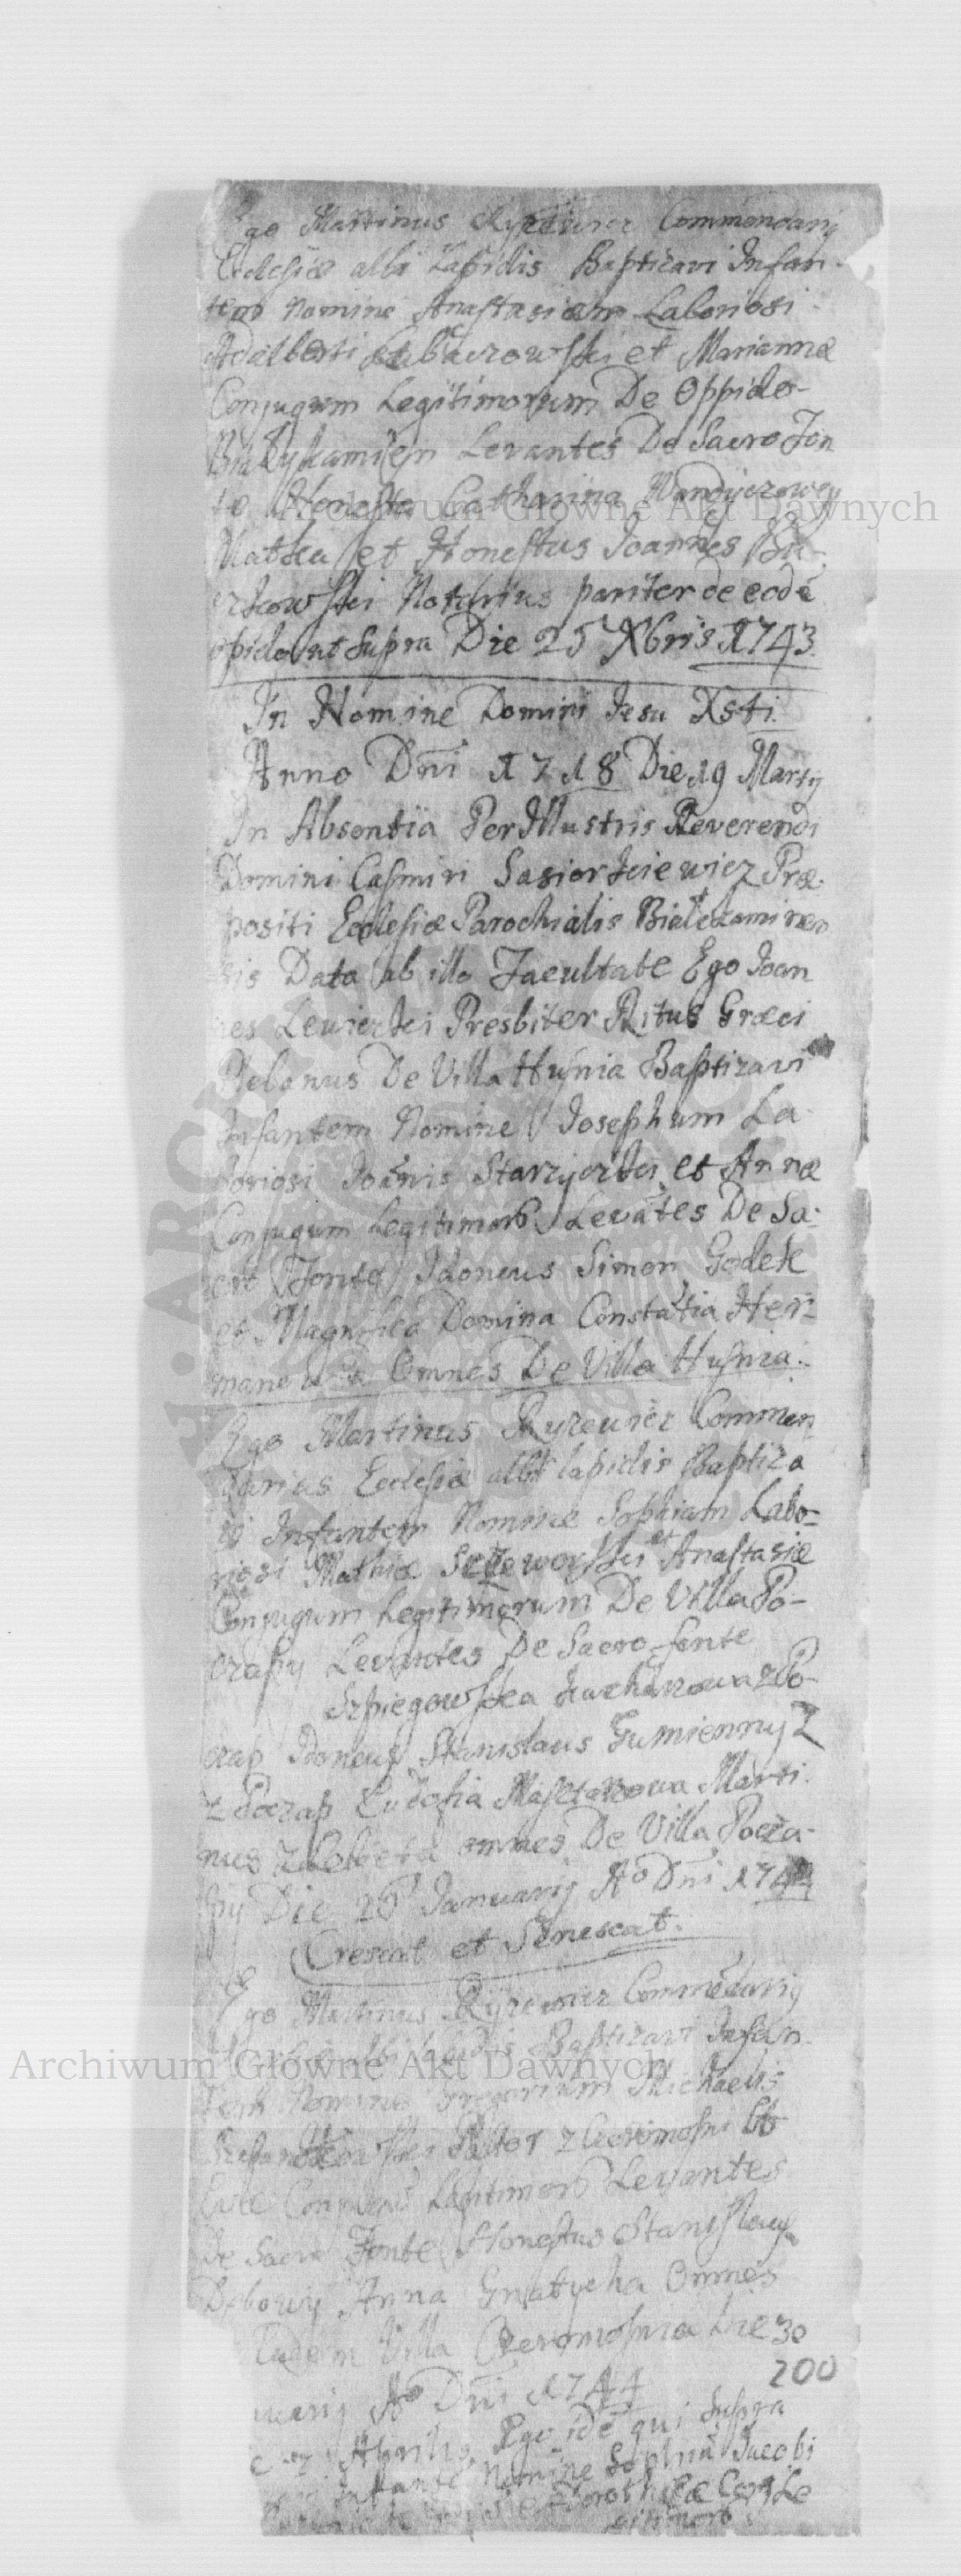 Ego Martinus Ryrewicz Commendarij
Ecclesiæ albi Lapidis Baptizavi Infan-
tem Nomine Anastasiam Laboriosi
Adalberti et Mariannæ
Conjugum Legitimorum De Oppido-
Białykamien Levantes De Sacro Fon
te Honesta Catharina
Matka et Honestus Joannes Bu-
Notarius pariter de eodē
opido ut Supra Die 25 Xbris 1743.
In Nomine Domini Jesu Xsti.
Anno Dni 1718 Die 19 Martij
In Absentia PerIllustris Reverendi
Domini Casmiri Sasiorskiewicz Præ-
positi Ecclesiæ Parochialis Bialekaminen
sis Data ab illo Facultate Ego Joan
nes Lewicki Presbiter Ritus Græci
Plebanus De Villa Husnia Baptizavi
Infantem Nomine Josephum La-
boriosi Joānis Starzycki et Annæ
Conjugum Legitimorō Levātes De Sa-
cro Fonte Idoneus Simon Godek
et Magnifica Domina Constātia Her-
manowa Omnes De Villa Husnia.
Ego Martinus Ryrewicz Commen
darius Ecclesiæ albi lapidis Baptiza
vi Infantem Nomine Sophiam Labo-
riosi Mathiæ et Anastasiæ
Conjugum Legitimorum De Villa Po-
czapy Levantes De Sacro fonte
Szpiegowska Kucharzowa z Po-
czap Idoneus Stanislaus Gumienny Z
z Poczap Marci-
nus omnes De Villa Pocza-
py Die 26 Januarij Ao Dni 1744
Crescat et Senescat.
Ego Martinus Ryrewicz Commēdarij
Ecclesiæ albi lapidis Baptizavi Infan-
tem Nomine Gregorium Michaelis
Pastor z Czeremosni
Conjugum Legitimorō Levantes
De Sacro Fonte Honestus Stanislaus
Dębowy Anna Gnatycha Omnes
Eadem Villa Czeremosnia Die 30
nuarij Ao Dni 1744
200
Aprilis Ego idē qui Supra
Infantē Nomine Sophiā Jacobi
et Dorotheæ Conj Le
gitimorō
Archiwum Główne Akt Dawnych
Archiwum Główne Akt Dawnych